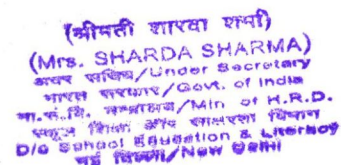 (श्रीमती शारदा शर्मा)
(Mrs. SHARDA SHARMA)
अवर सचिव/Under Secretary
भारत सरकार/Govt. of India
मा.सं.वि. मन्त्रालय/Min of H.R.D.
स्कूल शिक्षा और साक्षरता विभाग
D/o School Education & Literacy
नई दिल्ली/New Delhi